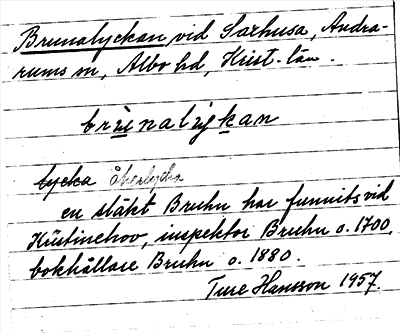 Brunalyckan vid Saxhusa, Andra-
rums sn, Albo hd, Krist. län.
brunalyckan
lycka åkerlycka
en släkt Bruhn har funnits vid
Kristinehov, inspektor Bruhn o. 1700,
bokhållare Bruhn o. 1880.
Ture Hansson 1957.